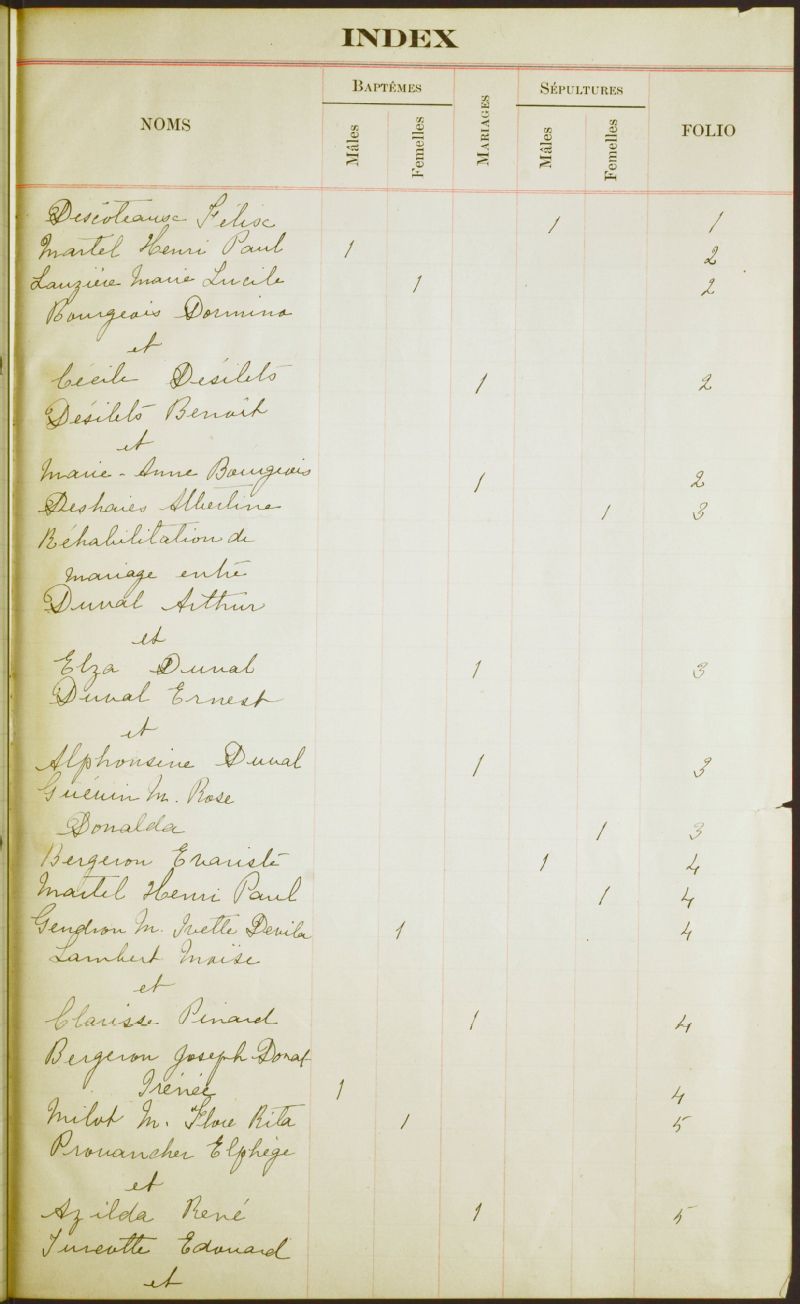 INDEX
NOMS BAPTÊMES Mâles Femelles MARIAGES SÉPULTURES Mâles Femelles FOLIO
Descoteaux Félix 1 1
Martel Henri Paul 1 2
Lauzière Marie Lucile 1 2
Bourgeois Dormino
et
Cécile Désilets 1 2
Désilets Benoît
et
Marie-Anne Bourgeois 1 2
Deshaies Albertine 1 3
Réhabilitation de
mariage entre
Duval Arthur
et
Elza Duval 1 3
Duval Ernest
et
Alphonsine Duval 1 3
Guévin M. Rose
Donalda 1 3
Bergeron Evariste 1 4
Martel Henri Paul 1 4
Gendron M. Ivette Devila 1 4
Lambert Moïse
et
Clarisse Pinard 1 4
Bergeron Joseph Donat
Irénée 1 4
Milot M. Flore Rita 1 5
Prouancher Elphège
et
Azilda René 1 5
Turcotte Edouard
et